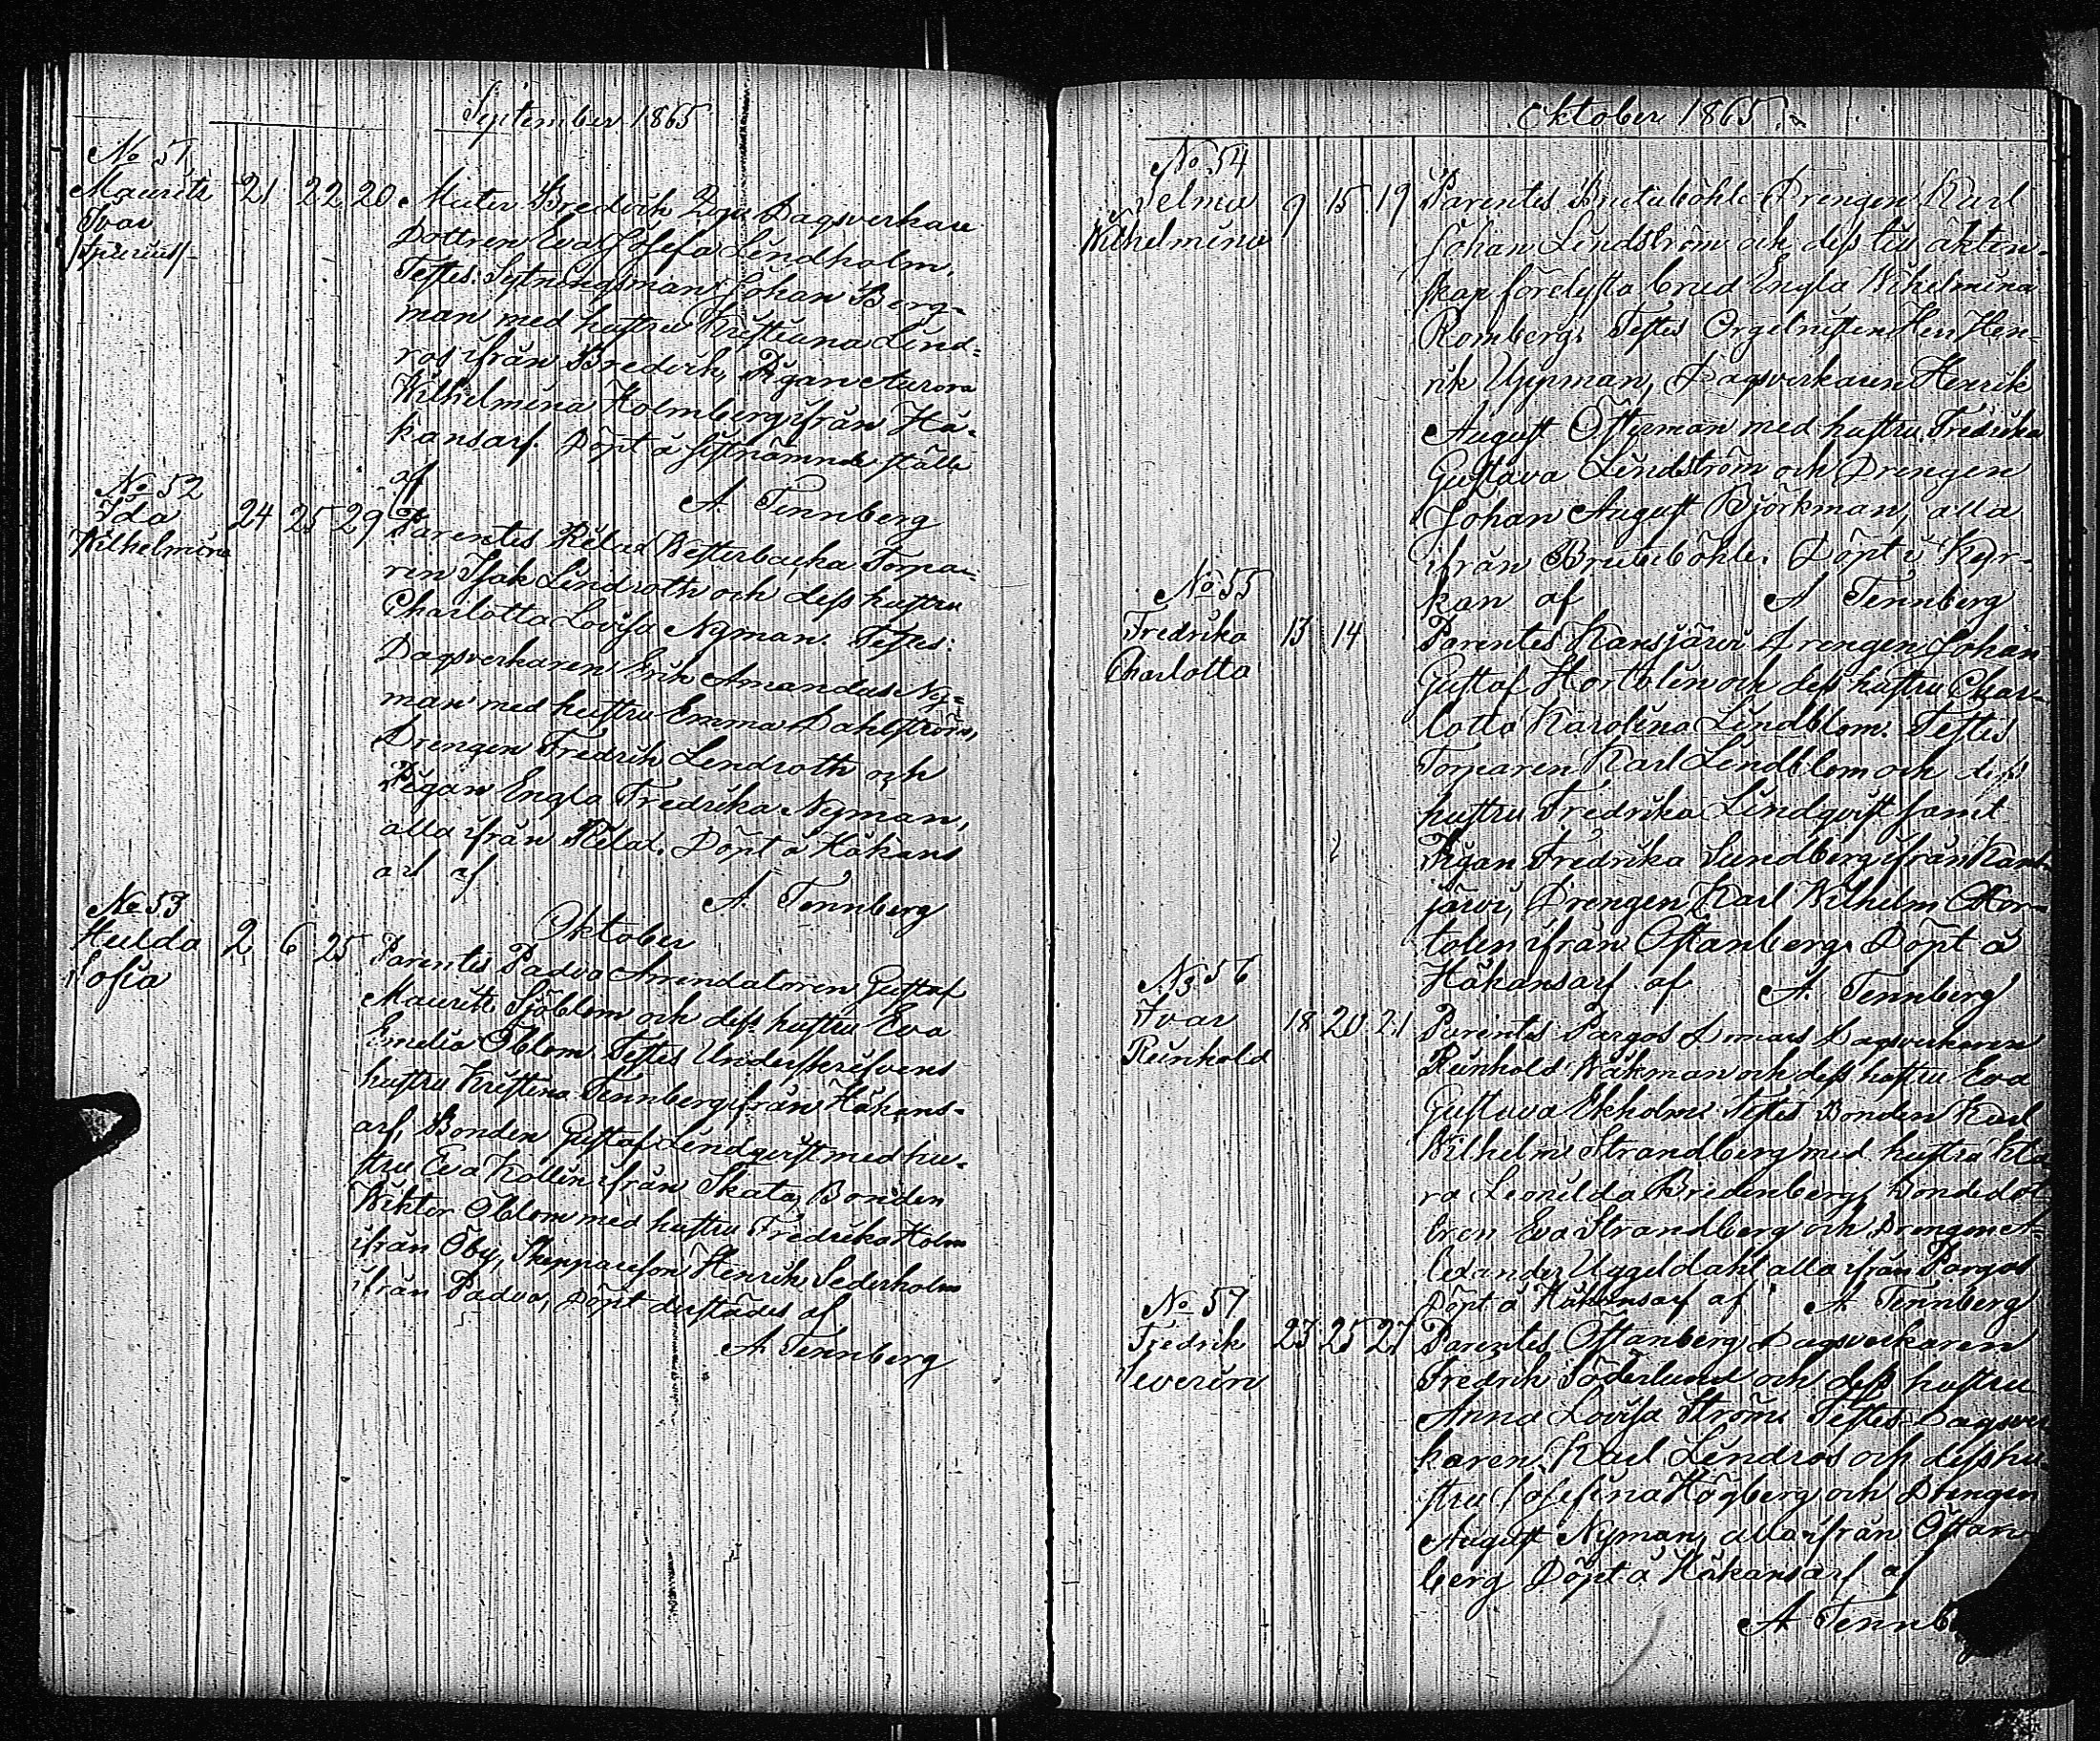 September 1865
No 51
Mauritz 21 22 20 Mater Bredvik Dagsverkare
Ivar dottren Eva Josefa Lindholm,
/spurius/ Testes: Sytningsman Johan Berg=
man med hustru Kristina Lind=
ros ifrån Bredvik, Pigan Aurora
Wilhelmina Holmberg ifrån Hå=
kansarf. Döpt å sistnämnde ställe
af
A. Tennberg
No 52
Ida 24 25 29 Parentes Westerbacka Torpa=
Wilhelmina ren Isak Lindroth och dess hustru
Charlotta Lovisa Nyman. Testes:
Dagsverkaren Erik Amandus Ny=
man med hustru Emma Dahlström,
Drengen Fredrik Lindroth och
Pigan Engla Fredrika Nyman,
alla ifrån Döpt å Håkans
arf af
A. Tennberg
Oktober
No 53
Hulda 2 6 25 Parentes Padva Arrendatoren Gustaf
Sofia Mauritz Sjöblom och dess hustru Eva
Emelia Öblom. Testes Underskrifvens
hustru Kristina Tennberg ifrån Håkans=
arf, Bonden Gustaf Lindqvist med hu=
stru Eva Kollin ifrån Skata, Bonden
Wiktor Öblom med hustru Fredrika Holm
ifrån Öby, Skeppareson Henrik Sederholm
ifrån Padva, Döpt derstädes af
A. Tennberg
Oktober 1865
No 54
Selma 9 15 19 Parentes Bruteböhle Drengen Karl
Wilhelmina Johan Lindström och dess till äkten=
skap förelysta brud Engla Wilhelmina
Romberg. Testes Orgelnisten Herr Hen=
rik Uppman, Dagsverkaren Henrik
August Österman med hustru Fredrika
Gustava Lindström och Drengen
Johan August Björkman, alla
ifrån Bruteböhle. Döpt i Kyr=
kan af A Tennberg
No 55
Fredrika 13 14 Parentes Kansjärvi Drengen Johan
Charlotta Gustaf Hortolin och dess hustru Char=
lotta Karolina Lindblom. Testes
Torparen Karl Lindblom och dess
hustru Fredrika Lindqvist samt
Pigan Fredrika Sundberg ifrån Kans
järvi, Drengen Karl Wilhelm Hor=
tolin ifrån Östanberg. Döpt å
Håkansarf af A. Tennberg
No 56
Ivar 18 20 21 Parentes Pargos Domars Dagsverkaren
Reinhold Reinhold Wäkman och dess hustru Eva
Gustava Ekholm. Testes Bonden Karl
Wilhelm Strandberg med hustru Kla
ra Leonilda Bredenberg, Bondedot
tren Eva Strandberg och Drengen A=
lexander Uggeldahl alla ifrån Pargos
Döpt å Håkansarf af A. Tennberg
No 57
Fredrik 23 25 27 Parentes Östanberg Dagsverkaren
Severin Fredrik Söderlund och dess hustru
Anna Lovisa Ström. Testes Dagsver
karen Karl Lindros och dess hu=
stru Josefina Högberg och Drengen
August Nyman, alla ifrån Östan=
berg Döpt å Håkansarf af
A Tennb